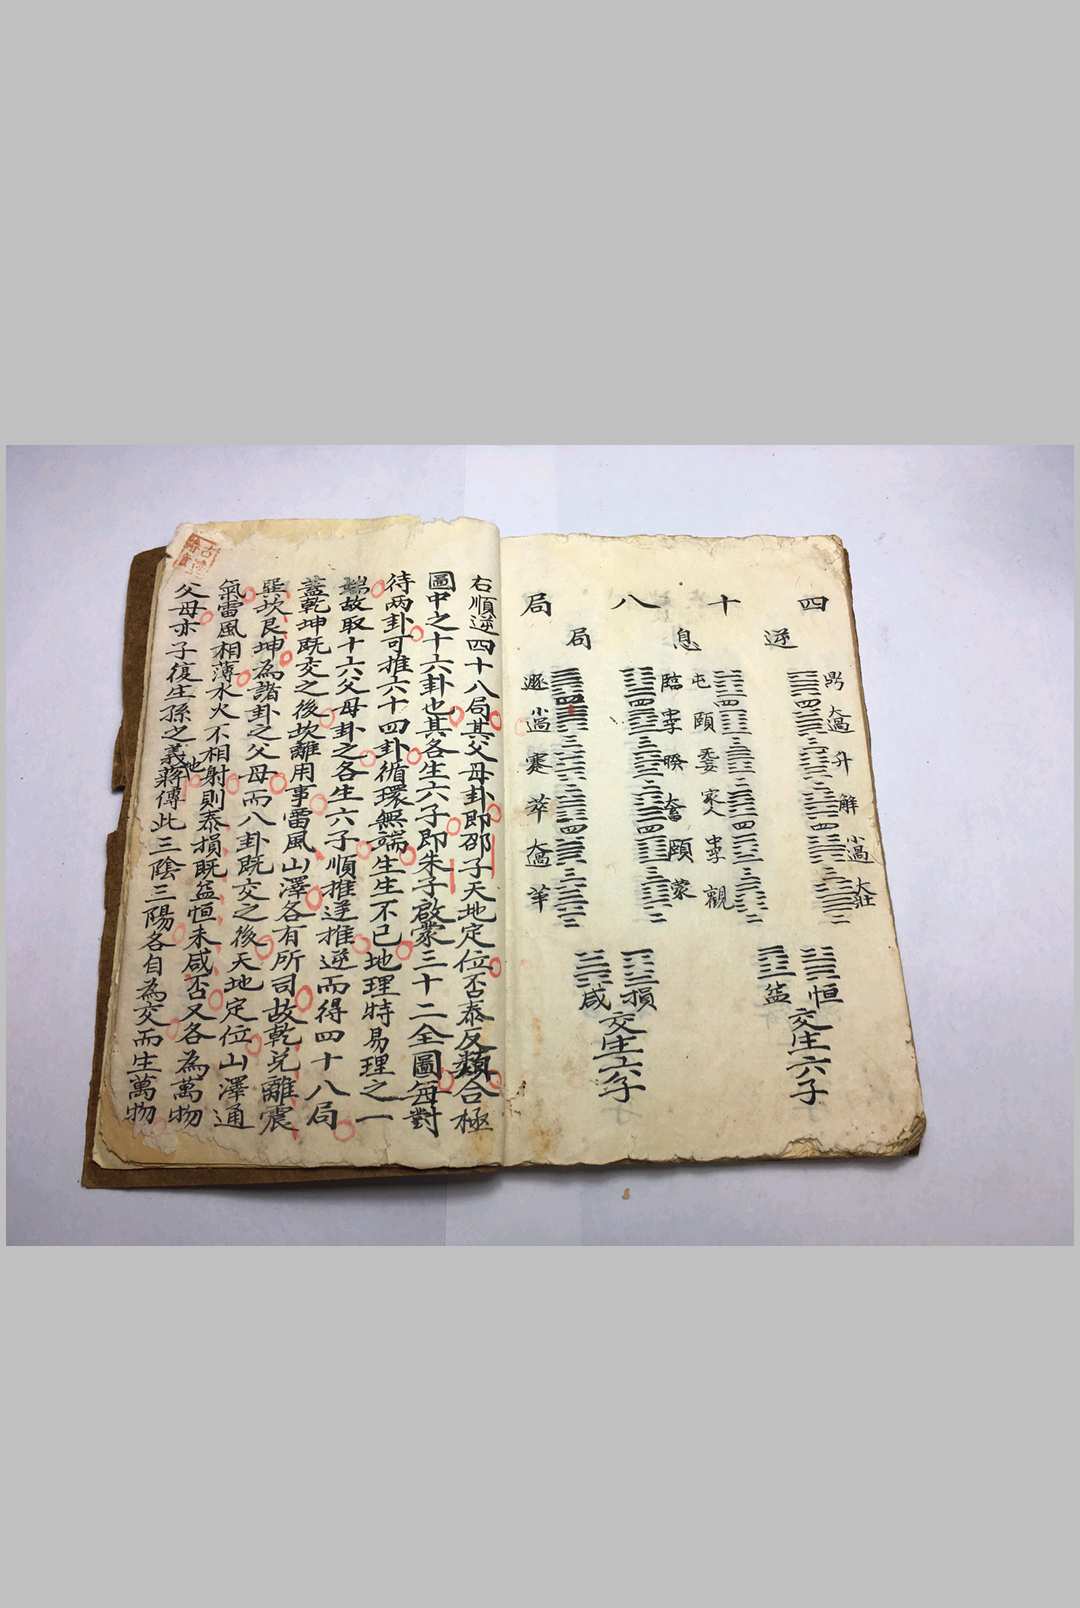 四十八局
逆息局
鼎 大過 升 解 小過 大壯
恒
益
交生六子
屯 頤 家人 中孚 觀
臨 中孚 睽 大畜 頤 蒙
損
咸
交生六子
遯 小過 蹇 萃 大過 革
右順逆四十八局其父母卦即邵子天地定位否泰反類合極
圖中之十六卦也其各生六子即朱子啟蒙三十二全圖每對
待兩卦可推六十四卦循環無端生生不已地理特易理之一
端故取十六父母卦之各生六子順推逆推逆而得四十八局
蓋乾坤既交之後坎離用事雷風山澤各有所司故乾兌離震
巽坎艮坤為諸卦之父母而八卦既交之後天地定位山澤通
氣雷風相薄水火不相射則泰損既益恒未咸否又各為萬物
父母亦子復生孫之義也蔣傳此三陰三陽各自為交而生萬物